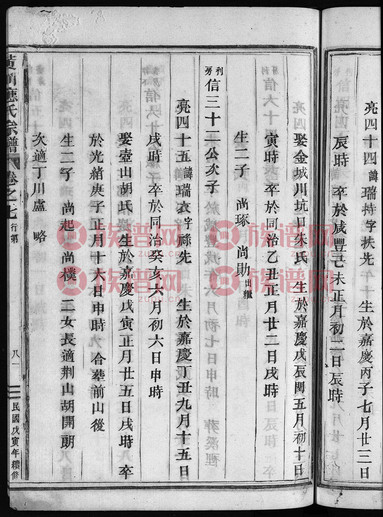 亮四十四諱瑞持字扶先 生於嘉慶丙子七月廿三日
辰時 卒於咸豐己未正月初二日辰時
娶金城川坑日朱氏 生於嘉慶戊辰閏五月初十日
寅時 卒於同治乙丑正月廿二日戌時
生二子 尚琢 尚助出繼
列房信三十二公次子
亮四十五諱瑞袁字祿先 生於嘉慶丁丑九月十五日
戌時 卒於同治癸亥六月初六日申時
娶壺山胡氏 生於嘉慶戊寅正月廿五日戌時 卒
於光緒庚子正月十六日申時 合葬前山後
生二子 尚起 尚樸 二女長適荆山胡開朝
次適丁川盧 略
黃岡應氏宗譜 卷之七 行第 八 民國戊寅年續修
族谱网